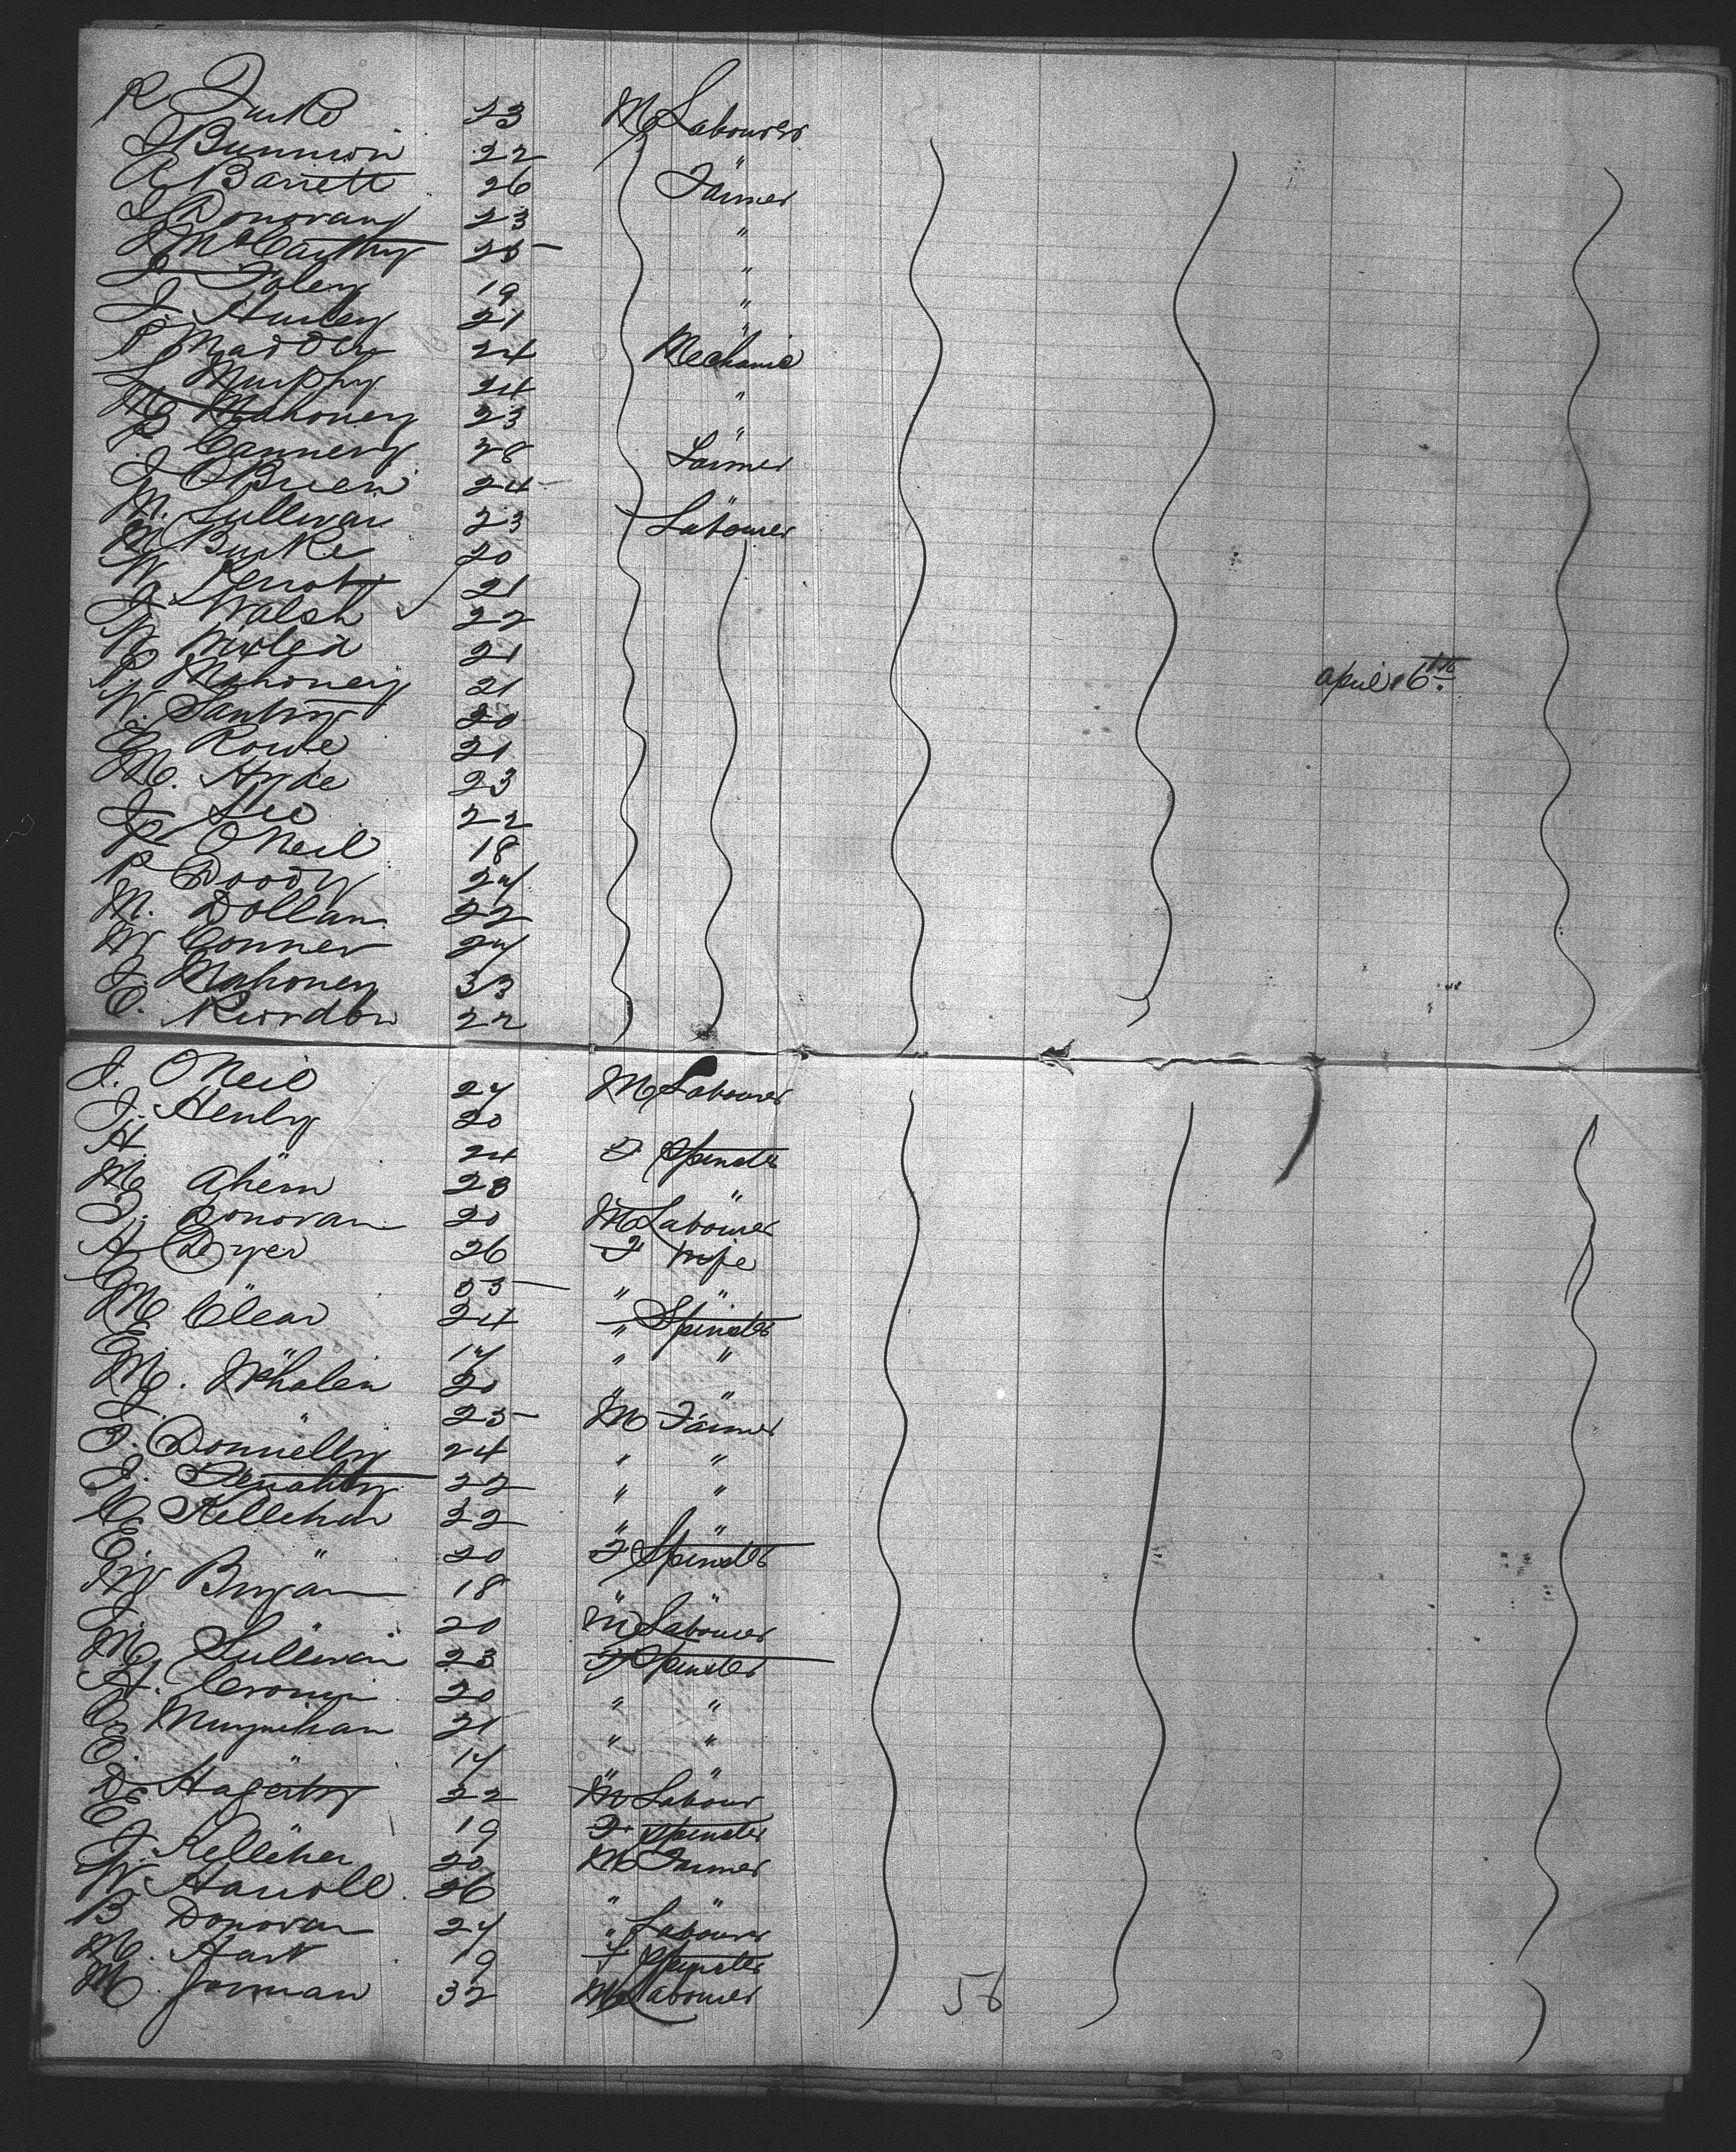 R. Burke 23 M Labourer
J Bunnion 22 "
A Barrett 26 Farmer
J Donovan 23 "
J McCarthy 25 "
J Foley 19 "
J. Hurley 21 "
P Madden 24 Mechanic
L Murphy 24 "
M Mahoney 23 "
P. Cannery 28 Farmer
J OBrien 24 "
M. Sullivan 23 Labourer
M Burke 20
W 21
J Walsh 22
W 21
P. Mahoney 21
W. Santry 20
C. Rowe 21
M. Hyde 23
J. Leo 22
P ONeil 18
P Doody 24
M. Dollan 22
W Conner 24
J. Mahoney 33
C. Riordon 22
April 16th
J. ONeil 24 M Labourer
J. Henly 20 "
H " 24 F Spinster
M Ahern 23 " "
J. Donovan 20 M Labourer
A Dwyer 26 F Wife
" " "
M Clear 24 " Spinster
E " 17 " "
M. Whalen 20 " "
J. " 25 M Farmer
J. Donnelly 24 " "
J. 22 " "
C Kellehar 22 " "
E " 20 F Spinster
W Bryan 18 " "
J. " 20 M Labourer
M Sullivan 23 F Spinster
H. Cronin 20 " "
C Muynihan 21 " "
E. " 17 " "
D. Hagerty 22 M Labour
E " 19 F Spinster
J. Kelleher 20 M Farmer
W. Harroll 26 " "
B Donovan 24 " Labourer
M. Hart 19 F Spinster
M. Gorman 32 M Labourer
56